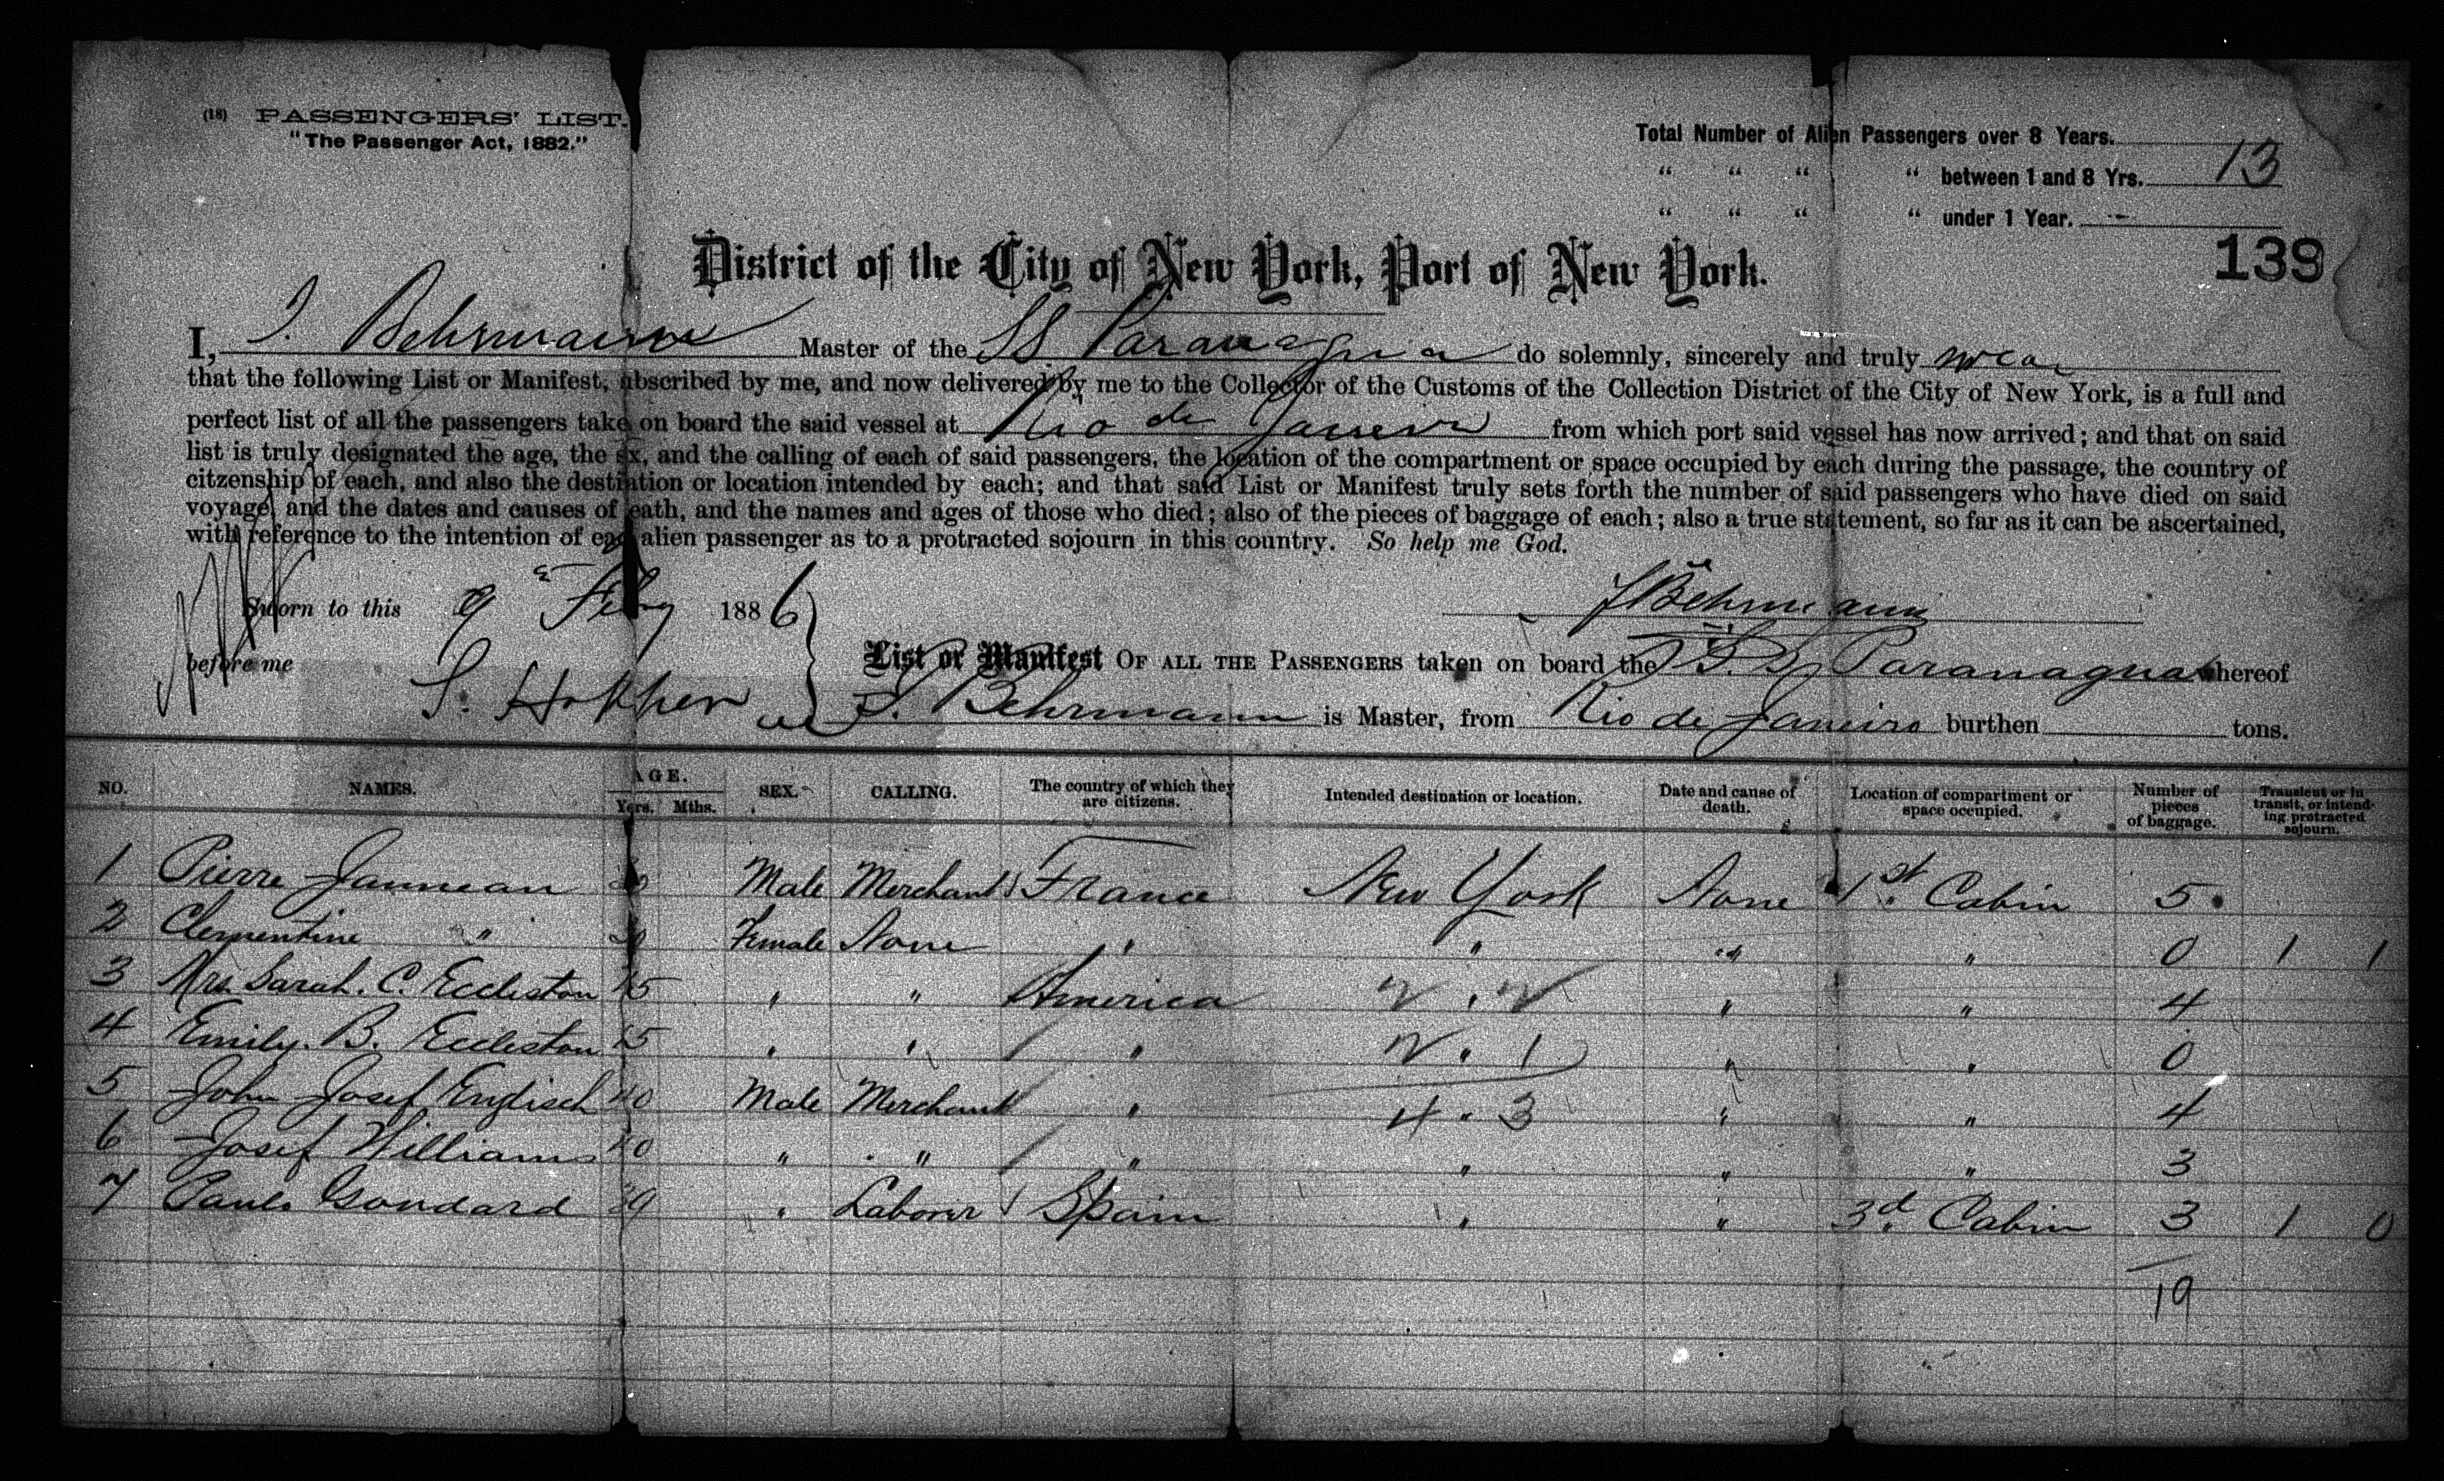 (18) PASSENGERS' LIST.
"The Passenger Act, 1882."
Total Number of Alien Passengers over 8 Years.
" " " " between 1 and 8 Yrs. 13
" " " " under 1 Year. -
139
District of the City of New York, Port of New York.
I, Behrmann Master of the SS Paranagua do solemnly, sincerely and truly swear
that the following List or Manifest, ubscribed by me, and now delivered by me to the Collector of the Customs of the Collection District of the City of New York, is a full and
perfect list of all the passengers take on board the said vessel at Rio de Janeiro from which port said vessel has now arrived; and that on said
list is truly designated the age, the sx, and the calling of each of said passengers, the location of the compartment or space occupied by each during the passage, the country of
citzenship of each, and also the destination or location intended by each; and that said List or Manifest truly sets forth the number of said passengers who have died on said
voyage, and the dates and causes of eath, and the names and ages of those who died; also of the pieces of baggage of each; also a true statement, so far as it can be ascertained,
with reference to the intention of eac alien passenger as to a protracted sojourn in this country. So help me God.
Sworn to this 9 Feby 1886 Behrmann
before me
List or Manifest OF ALL THE PASSENGERS taken on board the S.S. Paranagua whereof
Behrmann is Master, from Rio de Janeiro burthen tons.
NO. NAMES. AGE. Yers. Mths. SEX. CALLING. The country of which they are citizens. Intended destination or location. Date and cause of death. Location of compartment or space occupied. Number of pieces of baggage. Transient or in transit, or intending protracted sojourn.
1 Pierre Jannean Male Merchant France New York None 1st Cabin 5
2 Clementine " Female None " " " " 0 1 1
3 Mrs Sarah. C. Eccleston 45 " " America " " " 4
4 Emily. B. Eccleston " " " " " " 0
5 John Josef Englisch 40 Male Merchant " " " 4
6 Josef Williams 40 " " " " " " 3
7 Goudard " Laborer Spain " " 3d Cabin 3 1 0
19